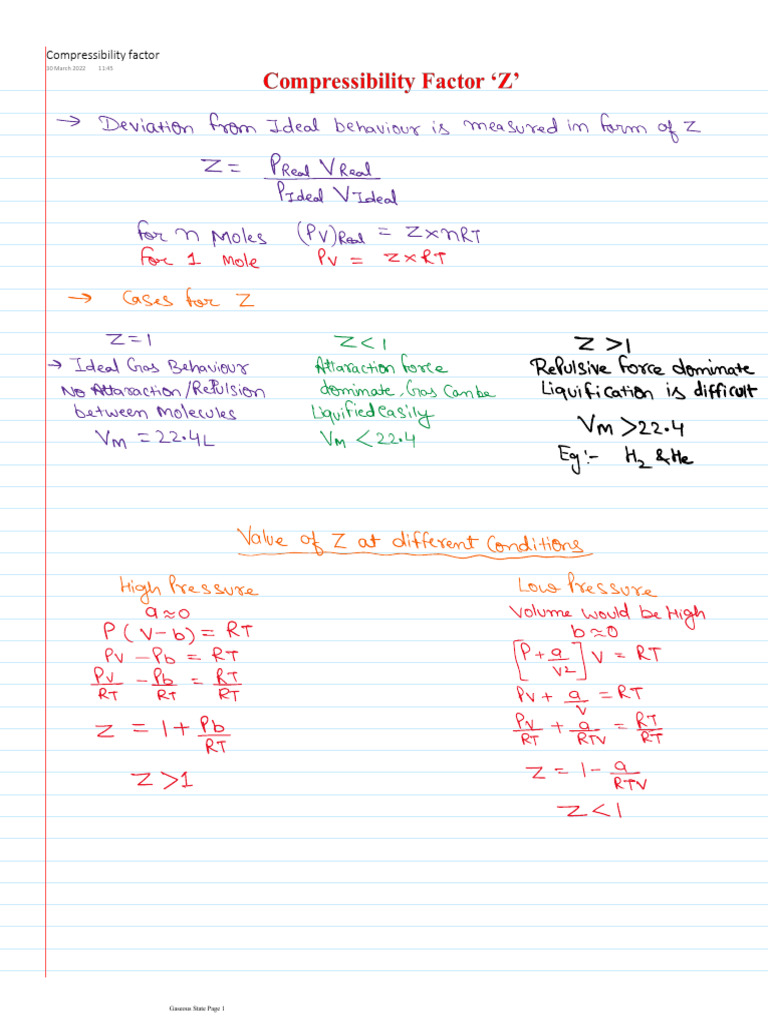 Compressibility factor
30 March 2022 11:45
Compressibility Factor ‘Z’
→ Deviation from Ideal behaviour is measured in form of Z
Z = P Real V Real / P Ideal V Ideal
for n Moles (PV)Real = Z×nRT
for 1 Mole PV = Z×RT
→ Cases for Z
Z=1
→ Ideal Gas Behaviour
No Attaraction/Repulsion
between Molecules
VM = 22.4L
Z<1
Attaraction force
dominate, Gas Can be
Liquified easily
VM < 22.4
Z >1
Repulsive force dominate
Liquification is difficult
VM > 22.4
Eg:- H2 & He
Value of Z at different Conditions
High Pressure
a≈0
P(V-b) = RT
PV - Pb = RT
PV/RT - Pb/RT = RT/RT
Z = 1 + Pb/RT
Z >1
Low Pressure
Volume would be High
b≈0
[P + a/V2] V = RT
PV + a/V = RT
PV/RT + a/RTV = RT/RT
Z = 1 - a/RTV
Z < 1
Gaseous State Page 1